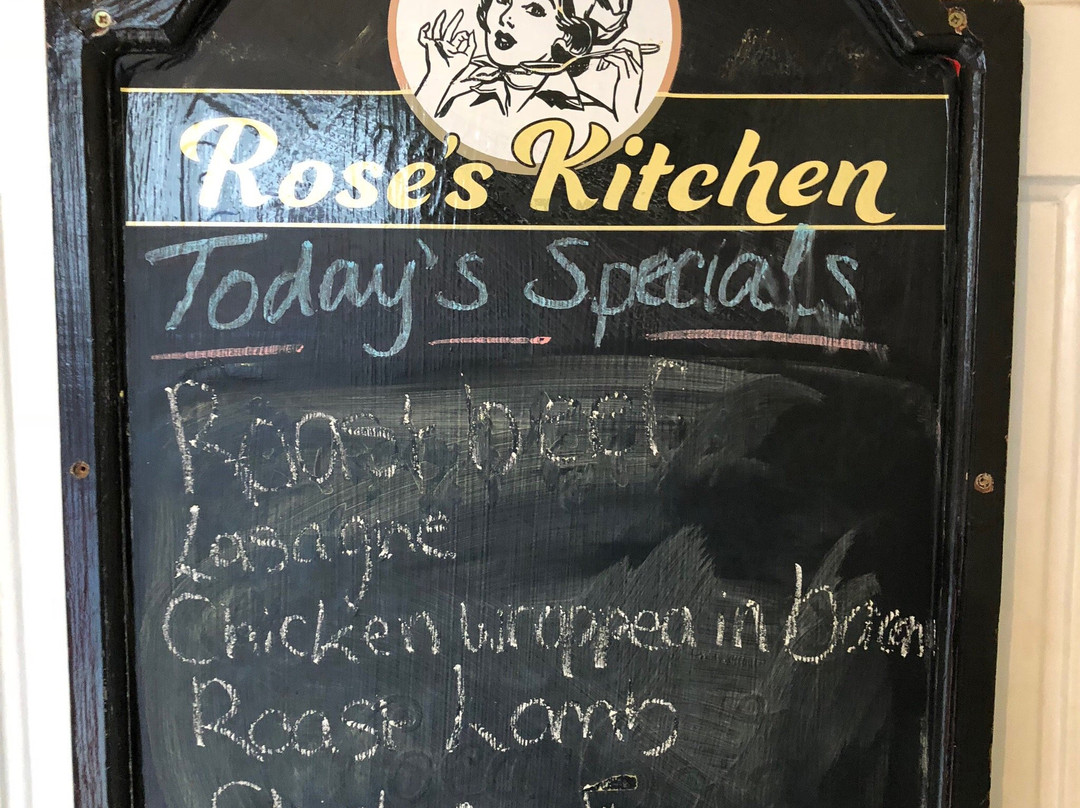 Rose's Kitchen
Today's Specials
Roast beef
Lasagne
Chicken wrapped in bacon
Roast Lamb